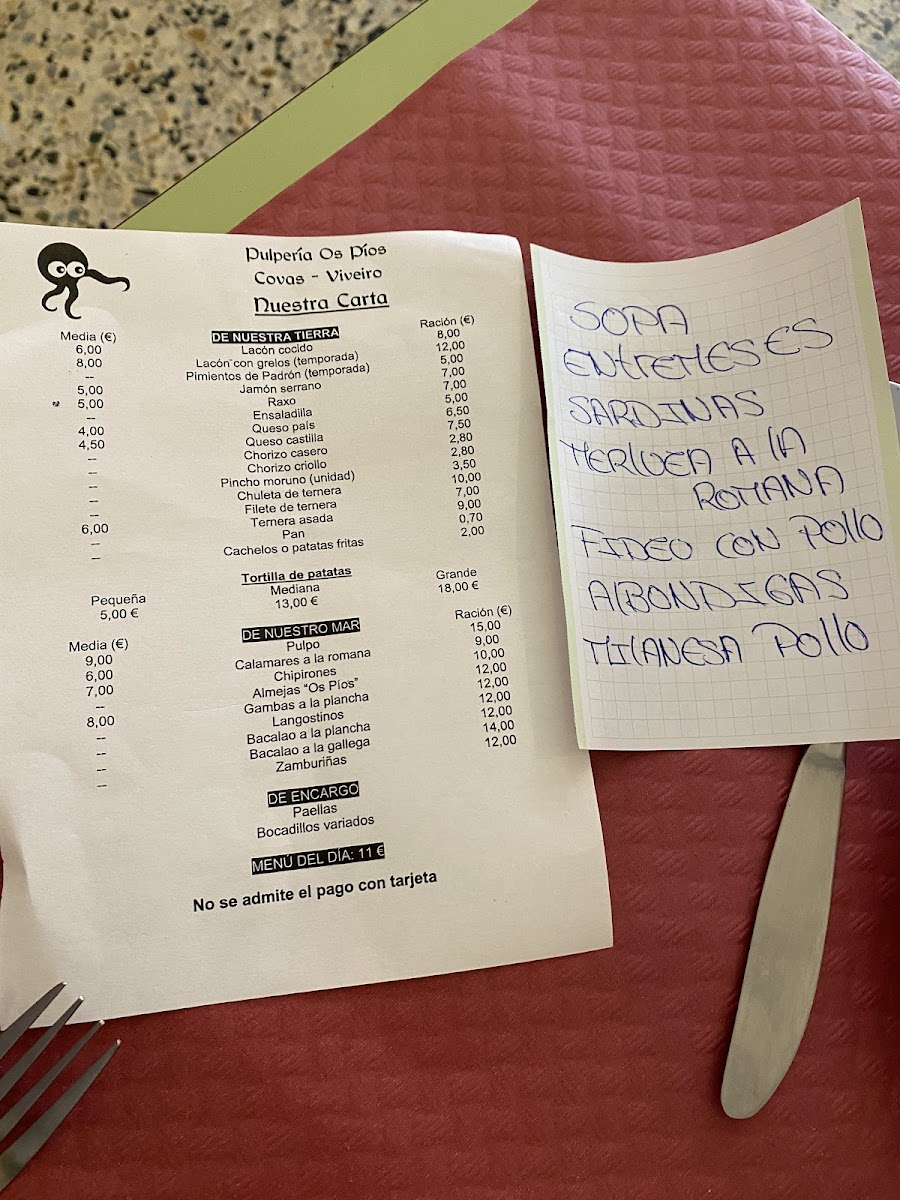 Pulpería Os Píos
Covas - Viveiro
Nuestra Carta
Media (€) DE NUESTRA TIERRA Ración (€)
6,00 Lacón cocido 8,00
8,00 Lacón con grelos (temporada) 12,00
-- Pimientos de Padrón (temporada) 5,00
5,00 Jamón serrano 7,00
5,00 Raxo 7,00
-- Ensaladilla 5,00
4,00 Queso país 6,50
4,50 Queso castilla 7,50
-- Chorizo casero 2,80
-- Chorizo criollo 2,80
-- Pincho moruno (unidad) 3,50
-- Chuleta de ternera 10,00
-- Filete de ternera 7,00
6,00 Ternera asada 9,00
-- Pan 0,70
-- Cachelos o patatas fritas 2,00
Tortilla de patatas
Pequeña Mediana Grande
5,00 € 13,00 € 18,00 €
Media (€) DE NUESTRO MAR Ración (€)
9,00 Pulpo 15,00
6,00 Calamares a la romana 9,00
7,00 Chipirones 10,00
-- Almejas "Os Píos" 12,00
8,00 Gambas a la plancha 12,00
-- Langostinos 12,00
-- Bacalao a la plancha 12,00
-- Bacalao a la gallega 14,00
-- Zamburiñas 12,00
DE ENCARGO
Paellas
Bocadillos variados
MENÚ DEL DÍA: 11 €
No se admite el pago con tarjeta
SOPA
ENTREMESES
SARDINAS
MERLUZA A LA
ROMANA
FIDEO CON POLLO
ALBONDIGAS
MILANESA POLLO